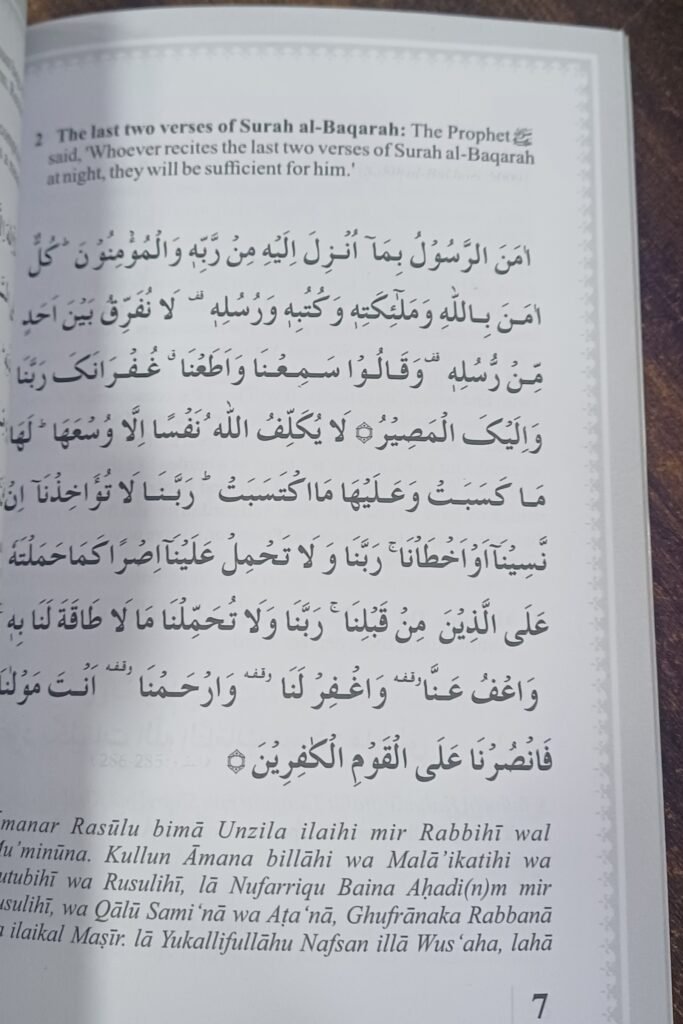 2 The last two verses of Surah al-Baqarah: The Prophet ﷺ
said, 'Whoever recites the last two verses of Surah al-Baqarah
at night, they will be sufficient for him.'
اٰمَنَ الرَّسُوْلُ بِمَاۤ اُنْزِلَ اِلَيْهِ مِنْ رَّبِّهٖ وَالْمُؤْمِنُوْنَ ؕ كُلٌّ
اٰمَنَ بِاللّٰهِ وَمَلٰٓئِكَتِهٖ وَكُتُبِهٖ وَرُسُلِهٖ ۟ لَا نُفَرِّقُ بَيْنَ اَحَدٍ
مِّنْ رُّسُلِهٖ ۟ وَقَالُوْا سَمِعْنَا وَاَطَعْنَا ۗ غُفْرَانَکَ رَبَّنَا
وَاِلَيْکَ الْمَصِيْرُ ۞ لَا يُكَلِّفُ اللّٰهُ نَفْسًا اِلَّا وُسْعَهَا ؕ لَهَا
مَا كَسَبَتْ وَعَلَيْهَا مَا اكْتَسَبَتْ ؕ رَبَّنَا لَا تُؤَاخِذْنَاۤ اِنْ
نَّسِيْنَاۤ اَوْ اَخْطَاْنَا ۚ رَبَّنَا وَلَا تَحْمِلْ عَلَيْنَاۤ اِصْرًا كَمَا حَمَلْتَهٗ
عَلَى الَّذِيْنَ مِنْ قَبْلِنَا ۚ رَبَّنَا وَلَا تُحَمِّلْنَا مَا لَا طَاقَةَ لَنَا بِهٖ
وَاعْفُ عَنَّا وقفه وَاغْفِرْ لَنَا وقفه وَارْحَمْنَا وقفه اَنْتَ مَوْلٰنَا
فَانْصُرْنَا عَلَى الْقَوْمِ الْكٰفِرِيْنَ ۞
manar Rasūlu bimā Unzila ilaihi mir Rabbihī wal
u'minūna. Kullun Āmana billāhi wa Malā'ikatihi wa
utubihī wa Rusulihī, lā Nufarriqu Baina Aḥadi(n)m mir
usulihī, wa Qālū Sami'nā wa Aṭa'nā, Ghufrānaka Rabbanā
ilaikal Maṣīr. lā Yukallifullāhu Nafsan illā Wus'aha, lahā
7